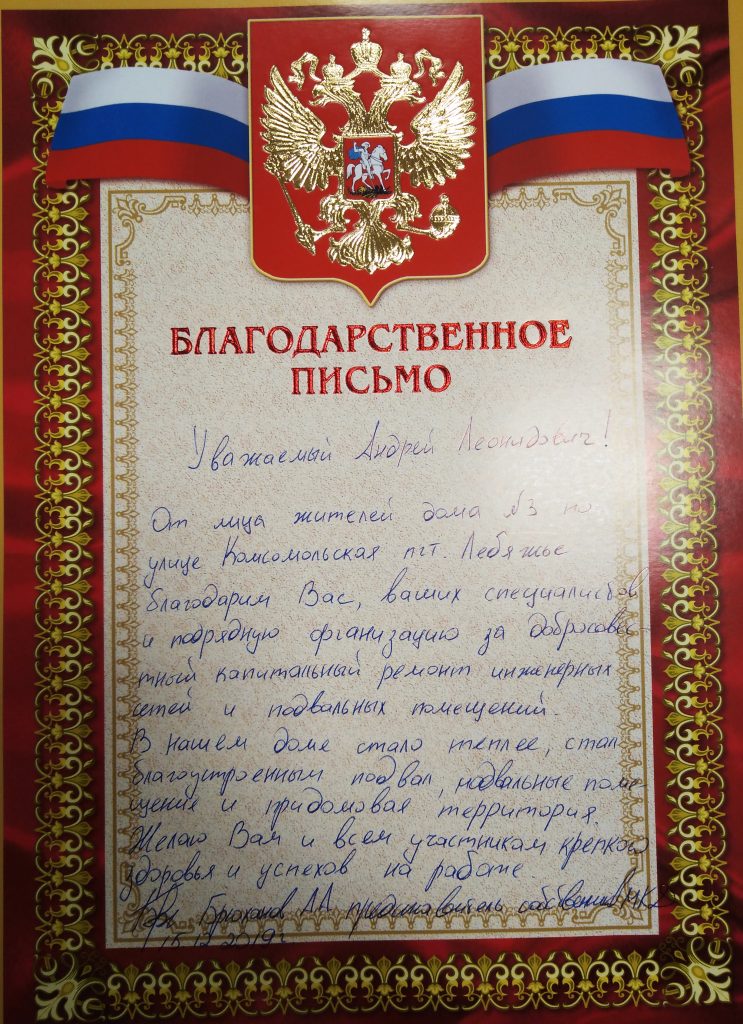 БЛАГОДАРСТВЕННОЕ
ПИСЬМО
Уважаемый Андрей Леонидович!
От лица жителей дома №3 по
улице Комсомольская пгт. Лебяжье
благодарим Вас, ваших специалистов
и подрядную организацию за добросовес-
тный капитальный ремонт инженерных
сетей и подвальных помещений.
В нашем доме стало теплее, стал
благоустроенным подвал, подвальные поме-
щение и придомовая территория.
Желаю Вам и всем участникам крепкого
здоровья и успехов на работе.
Брюханов А.А. представитель собственников МКД
2019г